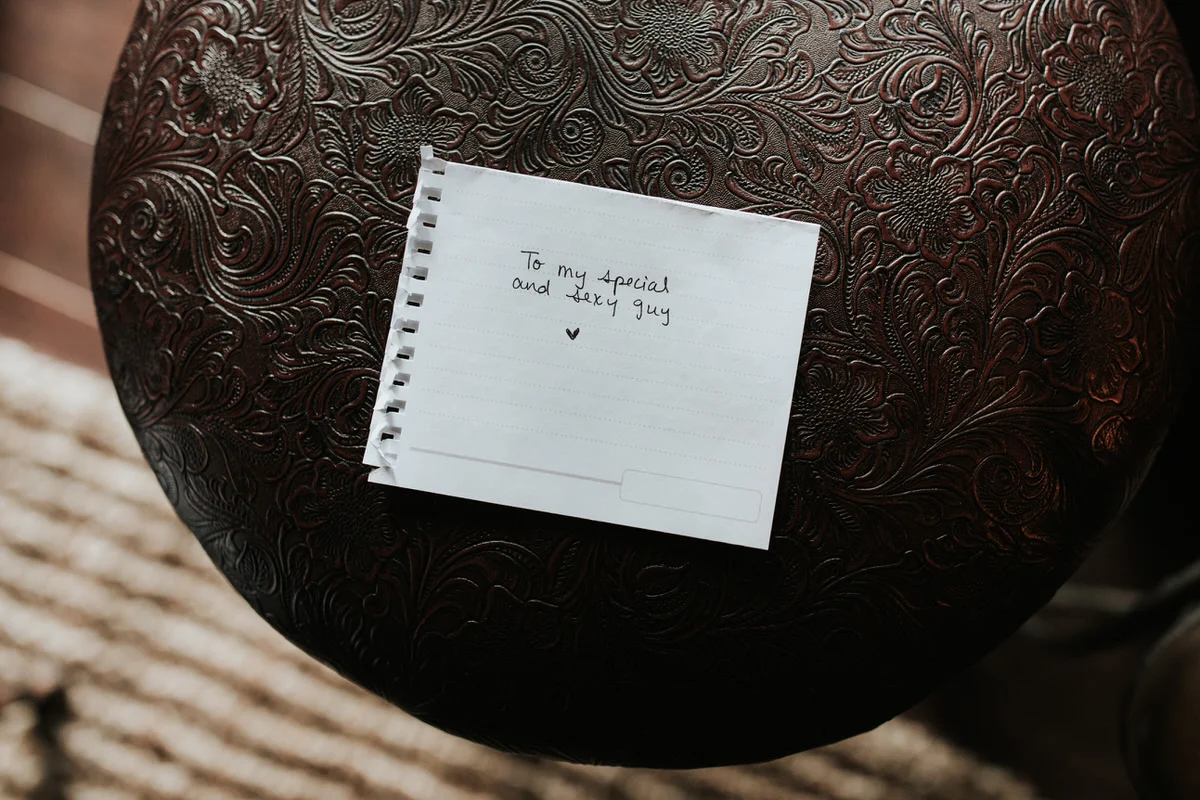 To my special
and sexy guy
♥